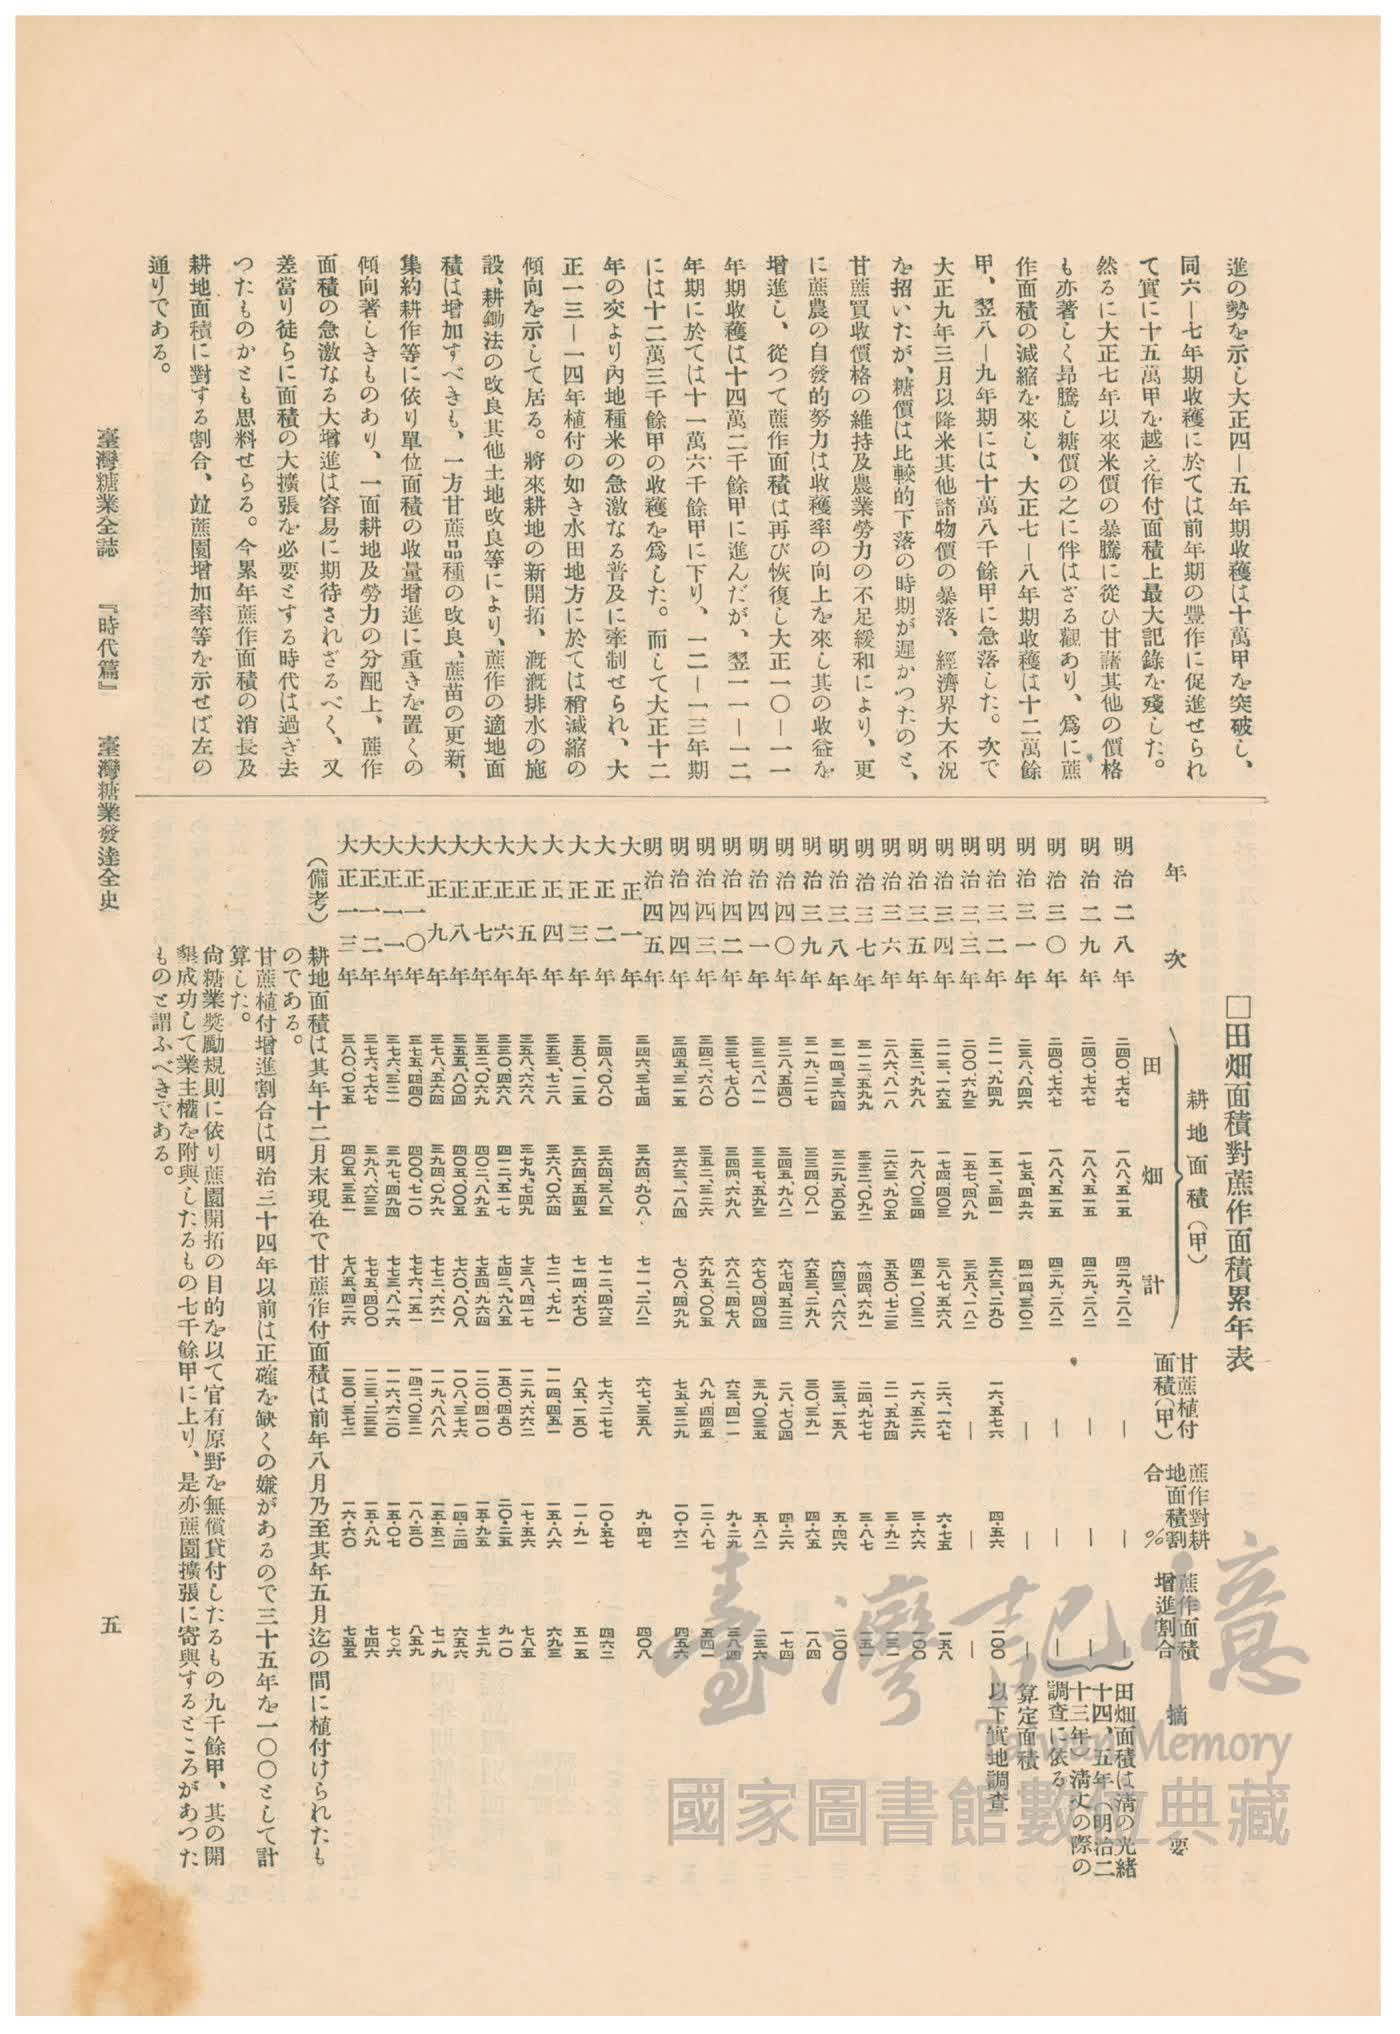 進の勢を示し大正四―五年期收穫は十萬甲を突破し、
同六―七年期收穫に於ては前年期の豐作に促進せられ
て實に十五萬甲を越え作付面積上最大記錄を殘した。
然るに大正七年以來米價の暴騰に從ひ甘諸其他の價格
も亦著しく昻騰し糖價の之に伴はざる觀あり、爲に蔗
作面積の減縮を來し、大正七―八年期收穫は十二萬餘
甲、翌八―九年期には十萬八千餘甲に急落した。次で
大正九年三月以降米其他諸物價の暴落、經濟界大不況
を招いたが、糖價は比較的下落の時期が遲かつたのと、
甘蔗買收價格の維持及農業勞力の不足緩和により、更
に蔗農の自發的努力は收穫率の向上を來し其の收益を
增進し、從つて蔗作面積は再び恢復し大正一〇―一一
年期收穫は十四萬二千餘甲に進んだが、翌一一―一二
年期に於ては十一萬六千餘甲に下り、一二―一三年期
には十二萬三千餘甲の收穫を爲した。而して大正十二
年の交より內地種米の急激なる普及に牽制せられ、大
正一三―一四年植付の如き水田地方に於ては稍減縮の
傾向を示して居る。將來耕地の新開拓、漑漑排水の施
設、耕鋤法の改良其他土地改良等により、蔗作の適地面
積は增加すべきも、一方甘蔗品種の改良、蔗苗の更新、
集約耕作等に依り單位面積の收量增進に重きを置くの
傾向著しきものあり、一面耕地及勞力の分配上、蔗作
面積の急激なる大增進は容易に期待されざるべく、又
差當り徒らに面積の大擴張を必要とする時代は過ぎ去
つたものかとも思料せらる。今累年蔗作面積の消長及
耕地面積に對する割合、竝蔗園增加率等を示せば左の
通りである。
□田畑面積對蔗作面積累年表
年次 耕地面積(甲) 田 畑 計 甘蔗植付面積(甲) 蔗作對耕地面積割合% 蔗作面積增進割合 摘要
明治二八年 二四〇、七六七 一八八、五一五 四二九、二八二 ― ― ―
明治二九年 二四〇、七六七 一八八、五一五 四二九、二八二 ― ― ―
明治三〇年 二四〇、七六七 一八八、五一五 四二九、二八二 ― ― ―
田畑面積は淸の光緖
十四、五年(明治二
十三年)淸丈の際の
調查に依る
明治三一年 二三八、八四六 一七五、四五六 四一四、三〇二 ― ― ― 算定面積
明治三二年 二一一、九四九 一五一、三四一 三六三、二九〇 一六、五七六 四・五六 一〇〇 以下實地調查
明治三三年 二〇〇、六九三 一五七、四八九 三五八、一八二 ― ― ―
明治三四年 二一三、一六五 一七四、四〇三 三八七、五六八 二六、一六七 六・七五 一五八
明治三五年 二五二、九九八 一九八、〇三四 四五一、〇三二 一六、五二六 三・六六 一〇〇
明治三六年 二八六、八一八 二六三、九〇五 五五〇、七二三 二一、五九四 三・九二 一三一
明治三七年 三一二、五九九 三三二、〇九二 六四四、六九一 二四、九七七 三・八七 一五一
明治三八年 三一四、三六四 三二九、五〇五 六四三、八六八 三五、一五八 五・四六 二〇〇
明治三九年 三一九、二一七 三三四、〇八一 六五三、二九八 三〇、三九一 四・六五 一八四
明治四〇年 三二八、五四〇 三四五、九八二 六七四、五二二 二八、七〇四 四・二六 一七四
明治四一年 三三二、八一一 三三七、五九三 六七〇、四〇四 三九、〇三五 五・八二 二三六
明治四二年 三三七、七八〇 三四四、六九八 六八二、四七八 六三、四一一 九・二九 三八四
明治四三年 三四二、六八〇 三五二、三二六 六九五、〇〇五 八九、四四五 一二・八七 五四一
明治四四年 三四五、三一五 三六三、一八四 七〇八、四九九 七五、三二九 一〇・六二 四五六
明治四五年
大正一年 三四六、三七四 三六四、九〇八 七一一、二八二 六七、三五八 九・四七 四〇八
大正二年 三四八、〇八〇 三六四、三八三 七一二、四六三 七六、二七七 一〇・五七 四六二
大正三年 三五〇、一二五 三六四、五四五 七一四、六七〇 八五、一五〇 一一・九一 五一五
大正四年 三五三、七二八 三六八、〇六四 七二一、七九一 一一四、四五八 一五・八六 六九三
大正五年 三五八、六六八 三七九、七四九 七三八、四一七 一二九、六六二 一七・五六 七八五
大正六年 三三〇、四六八 四一二、五一七 七四二、九八五 一五〇、四五〇 二〇・二五 九一〇
大正七年 三五二、〇六九 四〇二、八九五 七五四、九六四 一二〇、四一〇 一五・九五 七二九
大正八年 三五五、八〇四 四〇五、〇〇五 七六〇、八〇八 一〇八、三七六 一四・二四 六五六
大正九年 三七八、五六四 三九四、〇九六 七七二、六六一 一一九、八八八 一五・五二 七一九
大正一〇年 三七五、四四〇 四〇〇、七一〇 七七六、一五一 一四二、〇三二 一八・三〇 八五九
大正一一年 三七六、三二一 三九七、四九四 七七三、八一六 一一六、六二〇 一五・〇七 七〇六
大正一二年 三七六、七六七 三九八、六三三 七七五、四〇〇 一二三、二三三 一五・八九 七四六
大正一三年 三八〇、〇七五 四〇五、三五一 七八五、四二六 一三〇、三七二 一六・六〇 七五五
(備考) 耕地面積は其年十二月末現在で甘蔗作付面積は前年八月乃至其年五月迄の間に植付けられたも
のである。
甘蔗植付增進割合は明治三十四年以前は正確を缺くの嫌があるので三十五年を一〇〇として計
算した。
尙糖業奬勵規則に依り蔗園開拓の目的を以て官有原野を無償貸付したるもの九千餘甲、其の開
墾成功して業主權を附與したるもの七千餘甲に上り、是亦蔗園擴張に寄與するところがあつた
ものと謂ふべきである。
臺灣糖業全誌 『時代篇』 臺灣糖業發達全史 五
臺灣記憶
Taiwan Memory
國家圖書館數位典藏